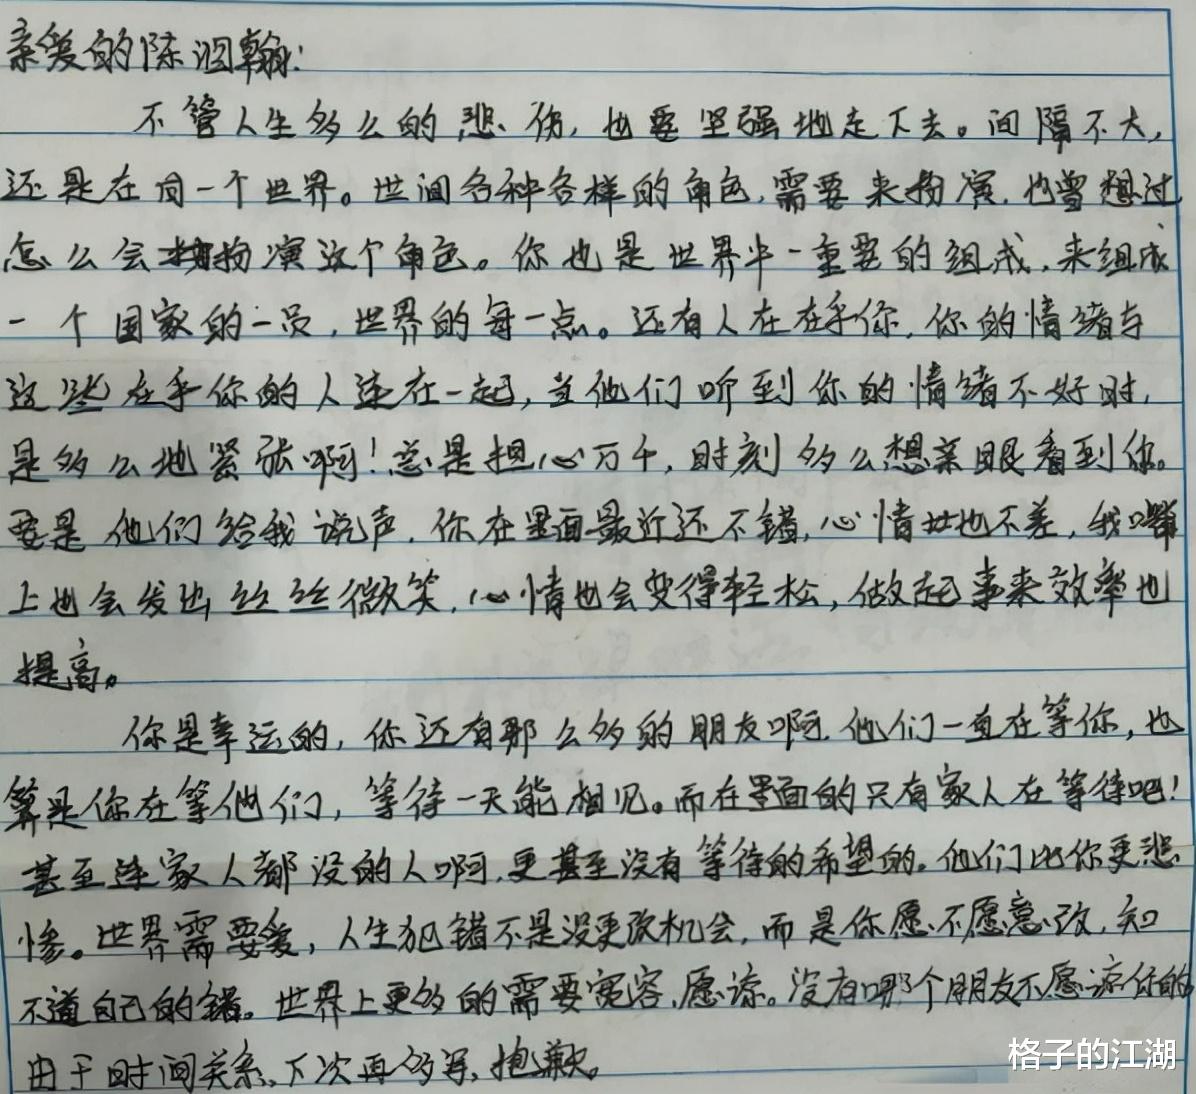 亲爱的陈泗翰:
不管人生多么的悲伤,也要坚强地走下去。间隔不大,
还是在同一个世界。世间各种各样的角色,需要来扮演,也曾想过
怎么会扮演这个角色。你也是世界中一重要的组成,来组成
一个国家的一员,世界的每一点。还有人在在乎你,你的情绪与
这些在乎你的人连在一起,当他们听到你的情绪不好时,
是多么地紧张啊!总是担心万千,时刻多么想亲眼看到你。
要是他们给我说声,你在里面最近还不错,心情也不差,我嘴
上也会发出丝丝微笑,心情也会变得轻松,做起事来效率也
提高。
你是幸运的,你还有那么多的朋友啊,他们一直在等你,也
算是你在等他们,等待一天能相见。而在里面的只有家人在等待吧!
甚至连家人都没的人啊,更甚至没有等待的希望的。他们比你更悲
惨。世界需要爱,人生犯错不是没更改机会,而是你愿不愿意改,知
不道自己的错。世界上更多的需要宽容,愿谅。没有哪个朋友不愿谅你的
由于时间关系,下次再多写,抱歉。
格子的江湖